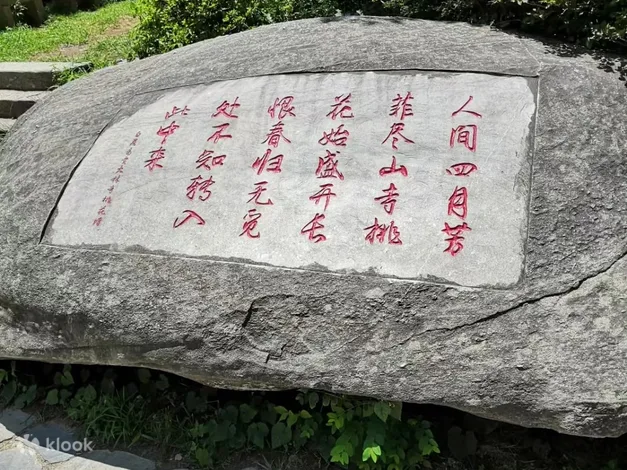 人间四月芳
菲尽山寺桃
花始盛开长
恨春归无觅
处不知转入
此中来
klook